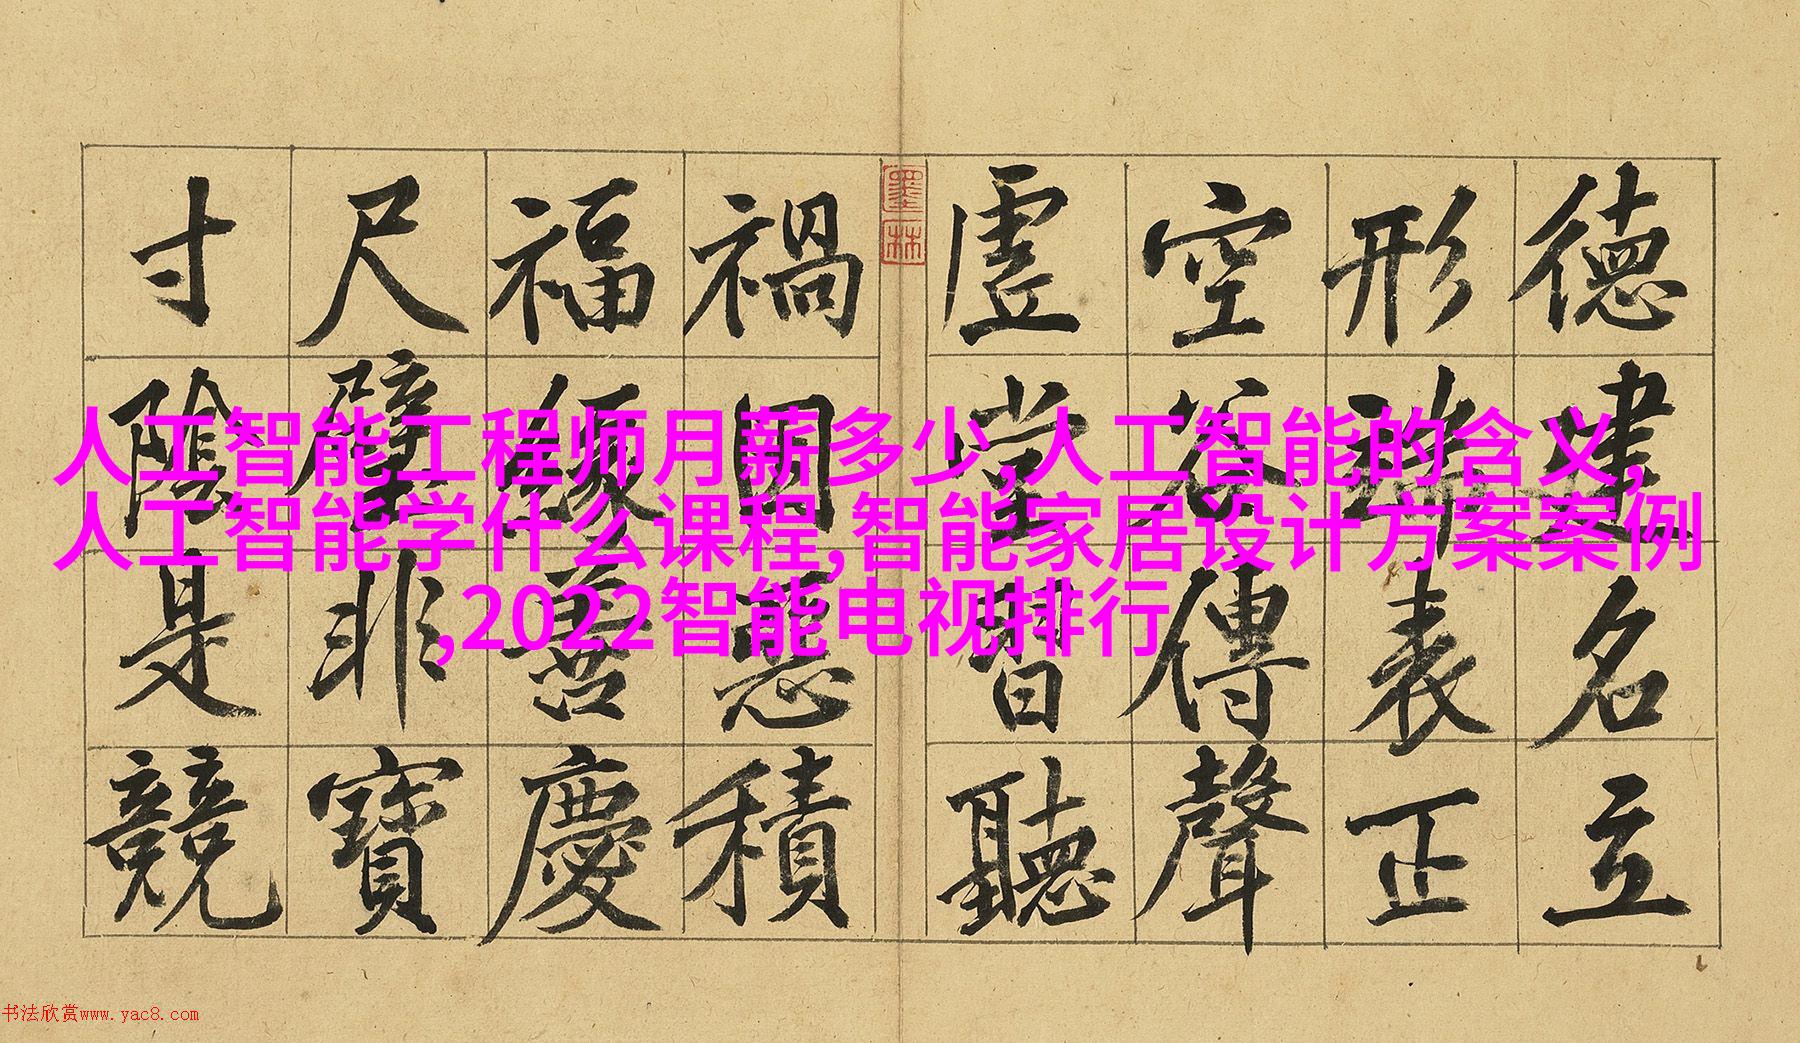 德建名立
形端表正
空谷傳聲
虛堂習聽
墨林
禍因惡積
福緣善慶
尺璧非寶
寸陰是競
人工智能工程师月薪多少,人工智能的含义,
人工智能学什么课程,智能家居设计方案案例
,2022智能电视排行
书法欣赏www.yac8.com